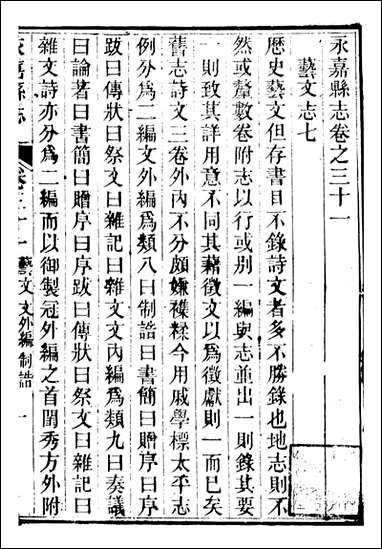 永嘉縣志卷之三十一
藝文志七
歷史藝文但存書目不錄詩文者多不勝錄也地志則不
然或釐數卷附志以行或别一編與志並出一則錄其要
一則致其詳用意不同其藉徵文以爲徵獻則一而已矣
舊志詩文三卷外内不分頗嫌襍糅今用戚學標太平志
例分爲二編文外編爲類八曰制誥曰書簡曰贈序曰序
跋曰傳狀曰祭文曰雜記曰雜文文内編爲類九曰奏議
曰論著曰書簡曰贈序曰序跋曰傳狀曰祭文曰雜記曰
雜文詩亦分爲二編而以御製冠外編之首閨秀方外附
永嘉縣志
卷三十一 藝文 文外編 制誥
一